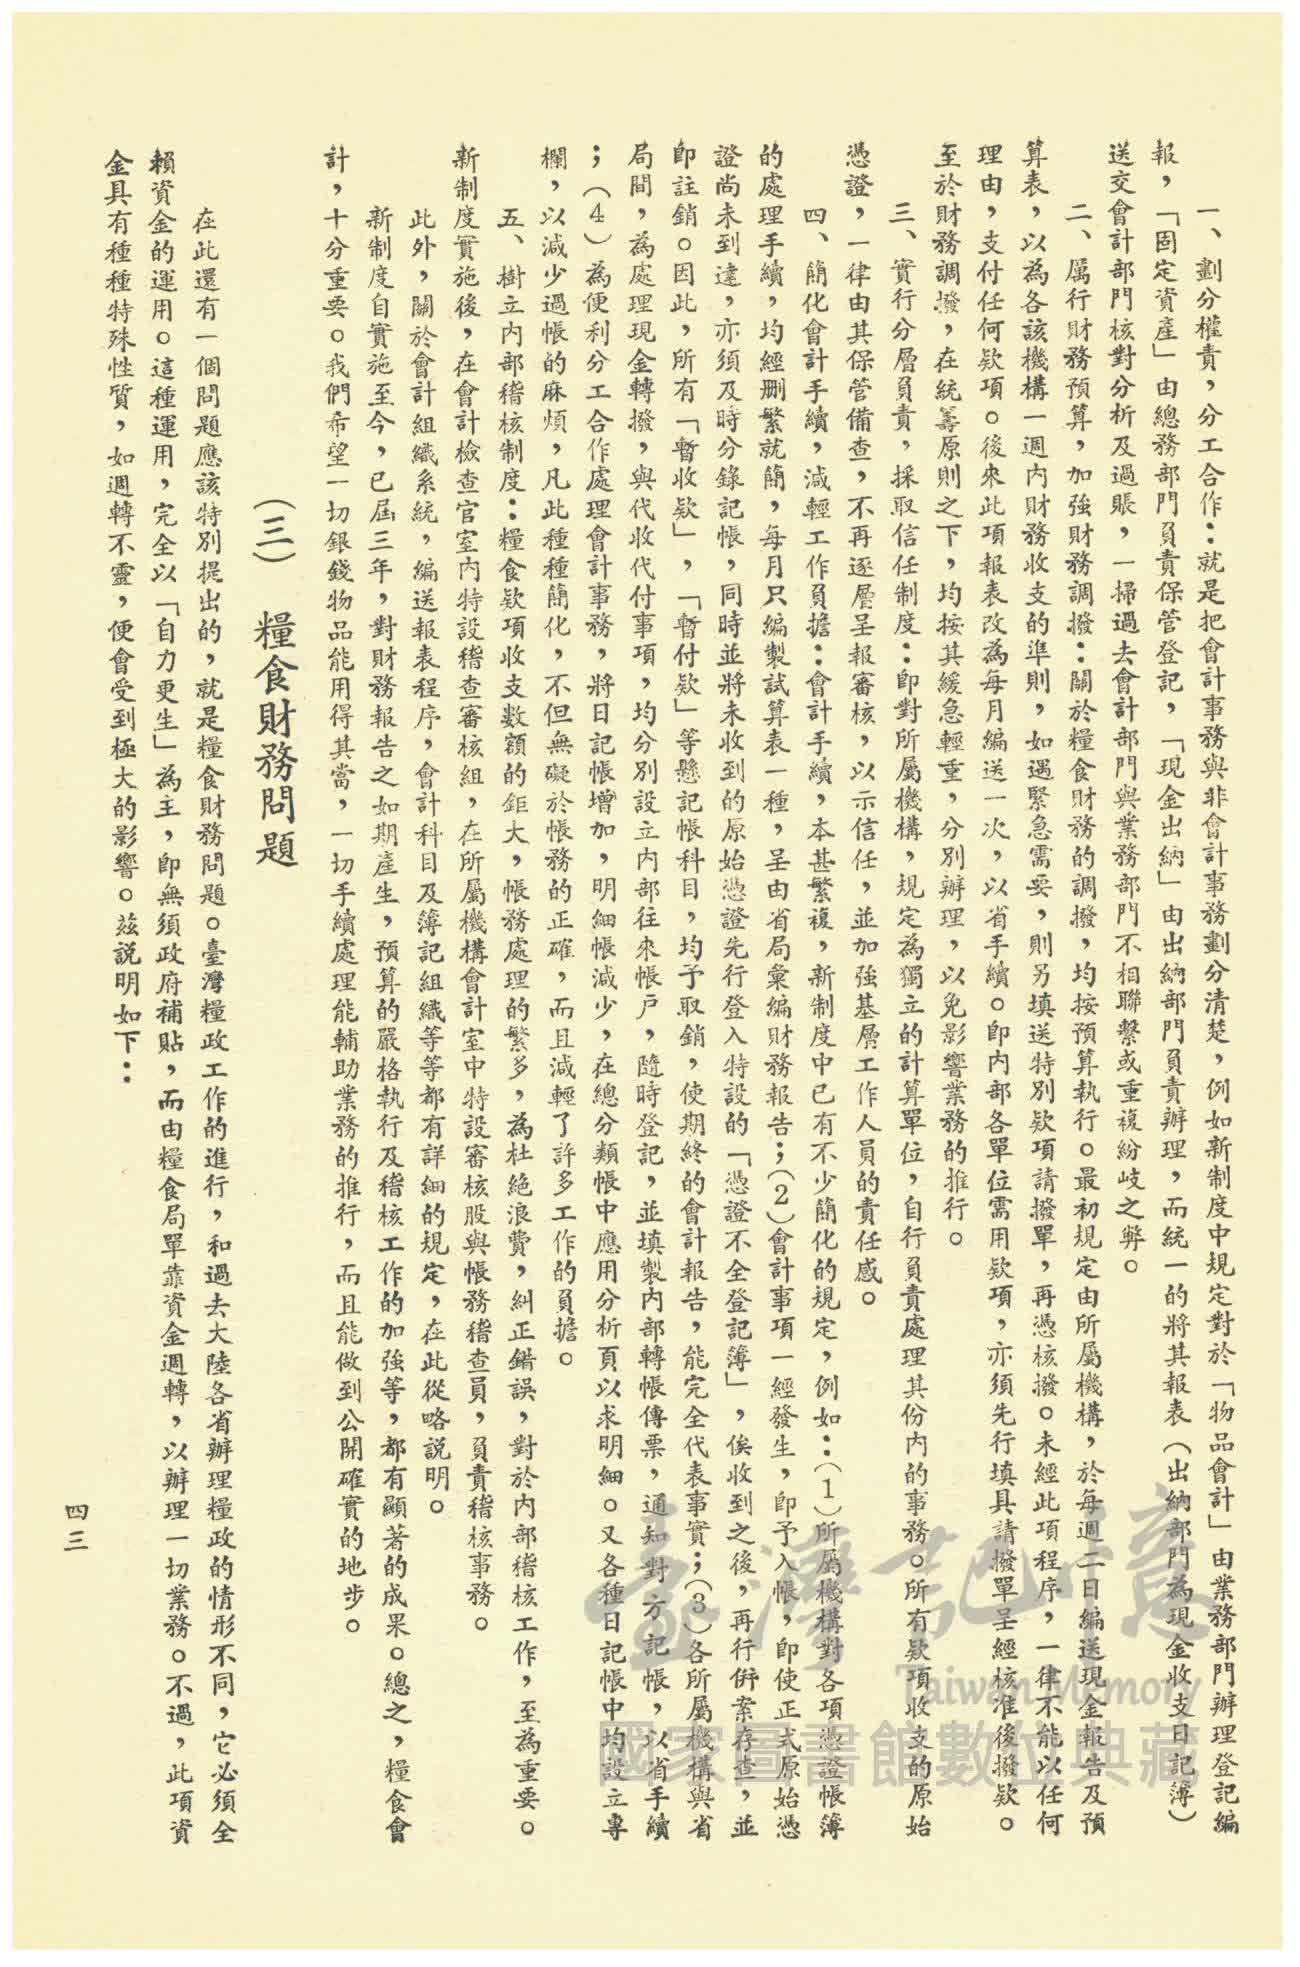 一、劃分權責，分工合作：就是把會計事務與非會計事務劃分清楚，例如新制度中規定對於「物品會計」由業務部門辦理登記編
報，「固定資產」由總務部門負責保管登記，「現金出納」由出納部門負責辦理，而統一的將其報表（出納部門為現金收支日記簿）
送交會計部門核對分析及過賬，一掃過去會計部門與業務部門不相聯繫或重複紛岐之弊。
二、厲行財務預算，加強財務調撥：關於糧食財務的調撥，均按預算執行。最初規定由所屬機構，於每週二日編送現金報告及預
算表，以為各該機構一週内財務收支的準則，如遇緊急需要，則另填送特別欵項請撥單，再憑核撥。未經此項程序，一律不能以任何
理由，支付任何欵項。後來此項報表改為每月編送一次，以省手續。即内部各單位需用欵項，亦須先行填具請撥單呈經核准後撥欵。
至於財務調撥，在統籌原則之下，均按其緩急輕重，分別辦理，以免影響業務的推行。
三、實行分層負責，採取信任制度：即對所屬機構，規定為獨立的計算單位，自行負責處理其份内的事務。所有欵項收支的原始
憑證，一律由其保管備查，不再逐層呈報審核，以示信任，並加強基層工作人員的責任感。
四、簡化會計手續，減輕工作負擔：會計手續，本甚繁複，新制度中已有不少簡化的規定，例如：（1）所屬機構對各項憑證帳簿
的處理手續，均經刪繁就簡，每月只編製試算表一種，呈由省局彙編財務報告；（2）會計事項一經發生，即予入帳，即使正式原始憑
證尚未到達，亦須及時分錄記帳，同時並將未收到的原始憑證先行登入特設的「憑證不全登記簿」，俟收到之後，再行併案存查，並
即註銷。因此，所有「暫收欵」，「暫付欵」等懸記帳科目，均予取銷，使期終的會計報告，能完全代表事實；（3）各所屬機構與省
局間，為處理現金轉撥，與代收代付事項，均分別設立内部往來帳戶，隨時登記，並填製内部轉帳傳票，通知對方記帳，以省手續
；（4）為便利分工合作處理會計事務，將日記帳增加，明細帳減少，在總分類帳中應用分析頁以求明細。又各種日記帳中均設立專
欄，以減少過帳的麻煩，凡此種種簡化，不但無礙於帳務的正確，而且減輕了許多工作的負擔。
五、樹立内部稽核制度：糧食欵項收支數額的鉅大，帳務處理的繁多，為杜絶浪費，糾正錯誤，對於内部稽核工作，至為重要。
新制度實施後，在會計檢查官室内特設稽查審核組，在所屬機構會計室中特設審核股與帳務稽查員，負責稽核事務。
此外，關於會計組織系統，編送報表程序，會計科目及薄記組織等等都有詳細的規定，在此從略説明。
新制度自實施至今，已屆三年，對財務報告之如期產生，預算的嚴格執行及稽核工作的加強等，都有顯著的成果。總之，糧食會
計，十分重要。我們希望一切銀錢物品能用得其當，一切手續處理能輔助業務的推行，而且能做到公開確實的地步。
（三）　糧食財務問題
在此還有一個問題應該特別提出的，就是糧食財務問題。臺灣糧政工作的進行，和過去大陸各省辦理糧政的情形不同，它必須全
賴資金的運用。這種運用，完全以「自力更生」為主，即無須政府補貼，而由糧食局單靠資金週轉，以辦理一切業務。不過，此項資
金具有種種特殊性質，如週轉不靈，便會受到極大的影響。茲説明如下：
四三
臺灣記憶
Taiwan Memory
國家圖書館數位典藏